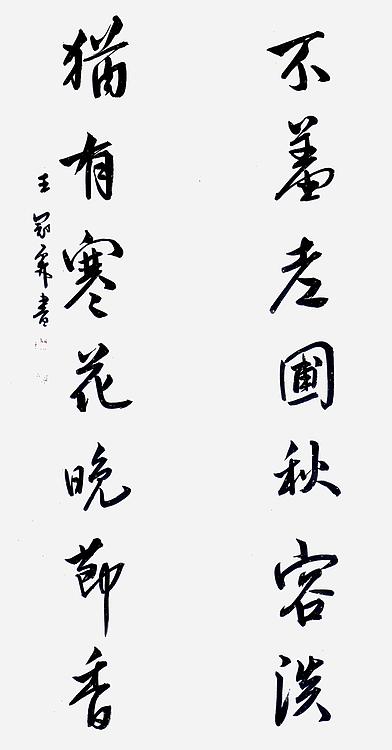 不羞老圃秋容淡
猶有寒花晚節香
王 書